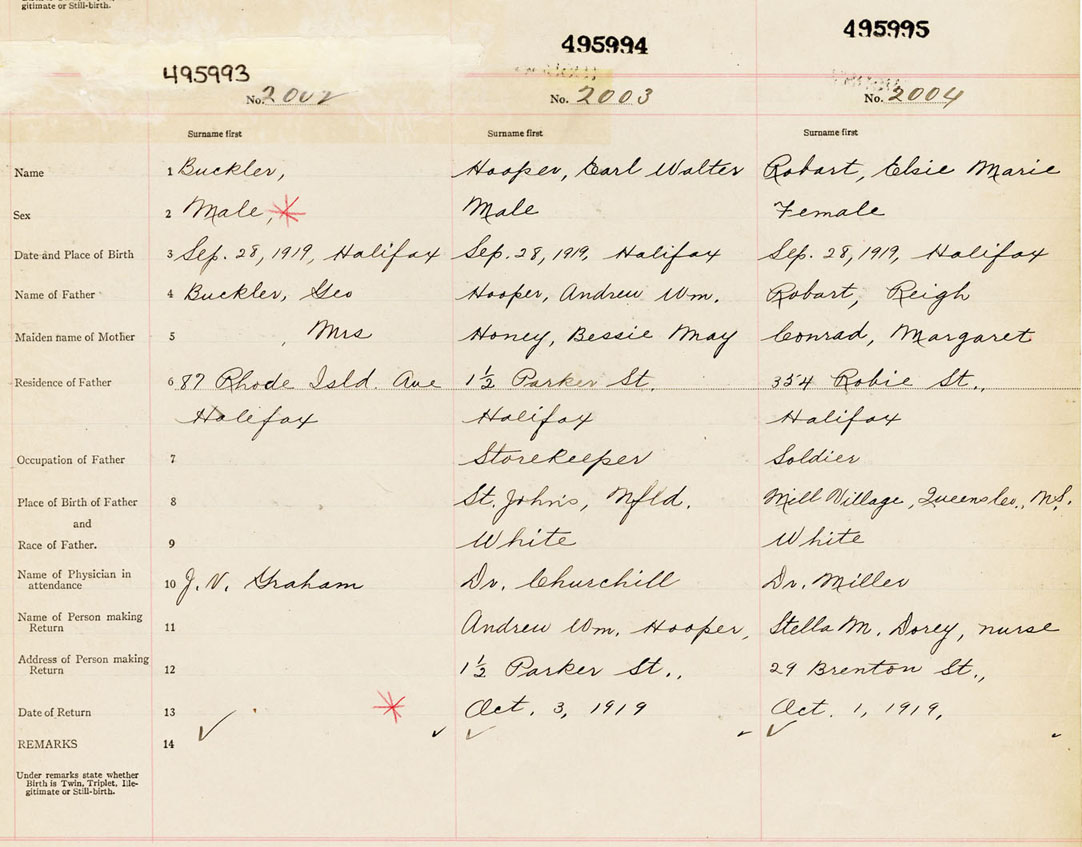 gitimate or Still-birth.
495993 495994 495995
No. 2002 No. 2003 No. 2004
Surname first Surname first Surname first
Name 1 Buckler, Hooper, Earl Walter Robart, Elsie Marie
Sex 2 Male, Male Female
Date and Place of Birth 3 Sep. 28, 1919, Halifax Sep. 28, 1919, Halifax Sep. 28, 1919, Halifax
Name of Father 4 Buckler, Geo Hooper, Andrew Wm. Robart, Reigh
Maiden name of Mother 5 , Mrs Honey, Bessie May Conrad, Margaret
Residence of Father 6 87 Rhode Isld. Ave 1½ Parker St. 354 Robie St.,
Halifax Halifax Halifax
Occupation of Father 7 Storekeeper Soldier
Place of Birth of Father 8 St. John's, Nfld. Mill Village, Queens Co., N.S.
and
Race of Father. 9 White White
Name of Physician in
attendance 10 J. V. Graham Dr. Churchill Dr. Miller
Name of Person making
Return 11 Andrew Wm. Hooper, Stella M. Dorey, nurse
Address of Person making
Return 12 1½ Parker St., 29 Brenton St.,
Date of Return 13 Oct. 3, 1919 Oct. 1, 1919,
REMARKS 14
Under remarks state whether
Birth is Twin, Triplet, Ille-
gitimate or Still-birth.